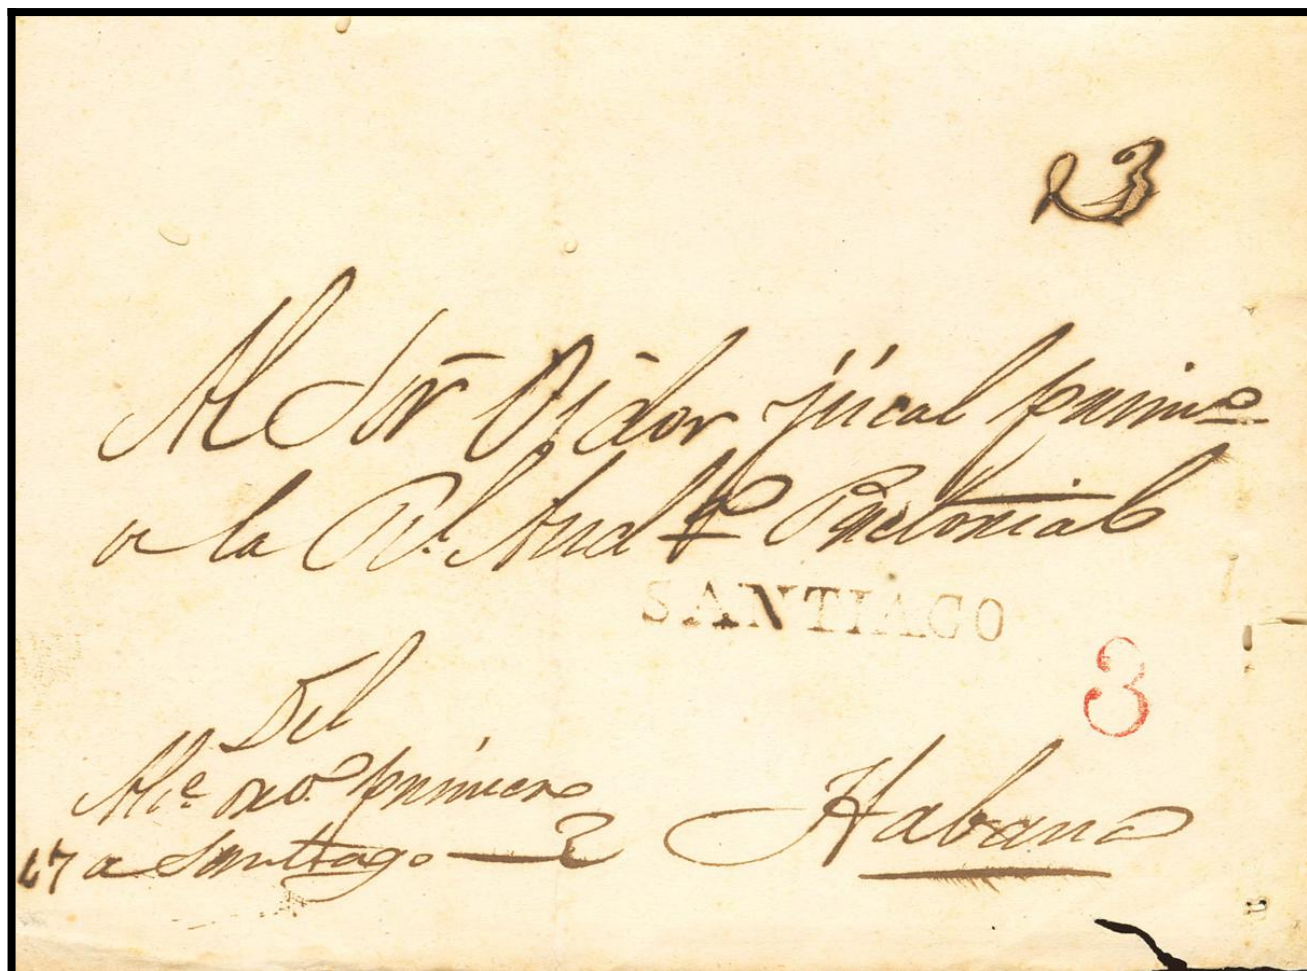 Al Sor Oydor fiscal primo
a la Rl. Aud Pretorial
SANTIAGO
3
Del
Alce. ord. primero
a Santiago
Habana